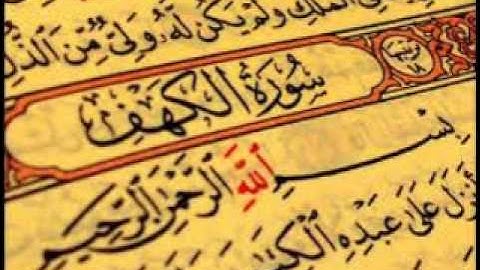 فِي الْمُلْكِ وَلَمْ يَكُن لَّهُ وَلِيٌّ مِّنَ الذُّلِّ
سُورَةُ الْكَهْفِ
بِسْمِ اللَّهِ الرَّحْمَٰنِ الرَّحِيمِ
أَنزَلَ عَلَىٰ عَبْدِهِ الْكِتَابَ